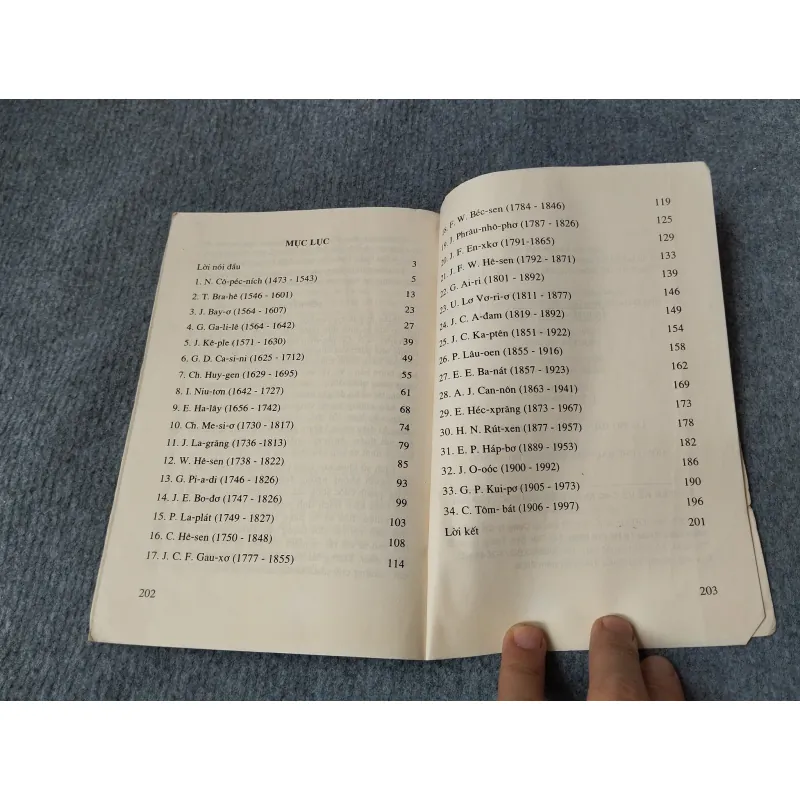 MỤC LỤC
Lời nói đầu 3
1. N. Cô-péc-ních (1473 - 1543) 5
2. T. Bra-hê (1546 - 1601) 13
3. J. Bay-ơ (1564 - 1607) 23
4. G. Ga-li-lê (1564 - 1642) 27
5. J. Kê-ple (1571 - 1630) 39
6. G. D. Ca-si-ni (1625 - 1712) 49
7. Ch. Huy-gen (1629 - 1695) 55
8. I. Niu-tơn (1642 - 1727) 61
9. E. Ha-lây (1656 - 1742) 68
10. Ch. Me-si-ơ (1730 - 1817) 74
11. J. La-grăng (1736 -1813) 79
12. W. Hê-sen (1738 - 1822) 85
13. G. Pi-a-di (1746 - 1826) 93
14. J. E. Bo-đơ (1747 - 1826) 99
15. P. La-plát (1749 - 1827) 103
16. C. Hê-sen (1750 - 1848) 108
17. J. C. F. Gau-xơ (1777 - 1855) 114
202
F. W. Béc-sen (1784 - 1846) 119
19. J. Phrâu-nhô-phơ (1787 - 1826) 125
20. J. F. En-xkơ (1791-1865) 129
21. J. F. W. Hê-sen (1792 - 1871) 133
22. G. Ai-ri (1801 - 1892) 139
23. U. Lơ Vơ-ri-ơ (1811 - 1877) 146
24. J. C. A-đam (1819 - 1892) 149
25. J. C. Ka-ptên (1851 - 1922) 154
26. P. Lâu-oen (1855 - 1916) 158
27. E. E. Ba-nát (1857 - 1923) 162
28. A. J. Can-nôn (1863 - 1941) 169
29. E. Héc-xprăng (1873 - 1967) 173
30. H. N. Rút-xen (1877 - 1957) 178
31. E. P. Háp-bơ (1889 - 1953) 182
32. J. O-oóc (1900 - 1992) 186
33. G. P. Kui-pơ (1905 - 1973) 190
34. C. Tôm- bát (1906 - 1997) 196
Lời kết 201
203